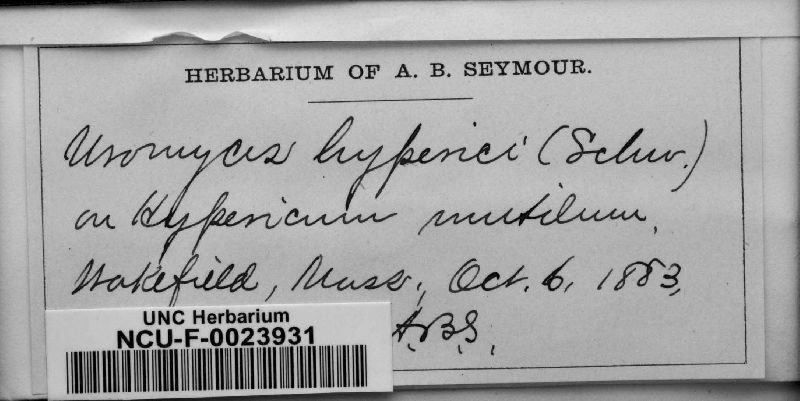 HERBARIUM OF A. B. SEYMOUR.
Uromyces hyperici (Schw.)
on Hypericum mutilum,
Wakefield, Mass., Oct. 6, 1883,
A.B.S.,
UNC Herbarium
NCU-F-0023931